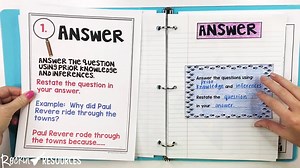 1.
ANSWER
ANSWER THE QUESTION
USING PRIOR KNOWLEDGE
AND INFERENCES.
Restate the question in
your answer.
Example: Why did Paul
Revere ride through the
towns?
Paul Revere rode through
the towns because.....
ANSWER
Answer the questions using
Prior
Knowledge and inferences
Restate the question
in your answer.
RESOURCES